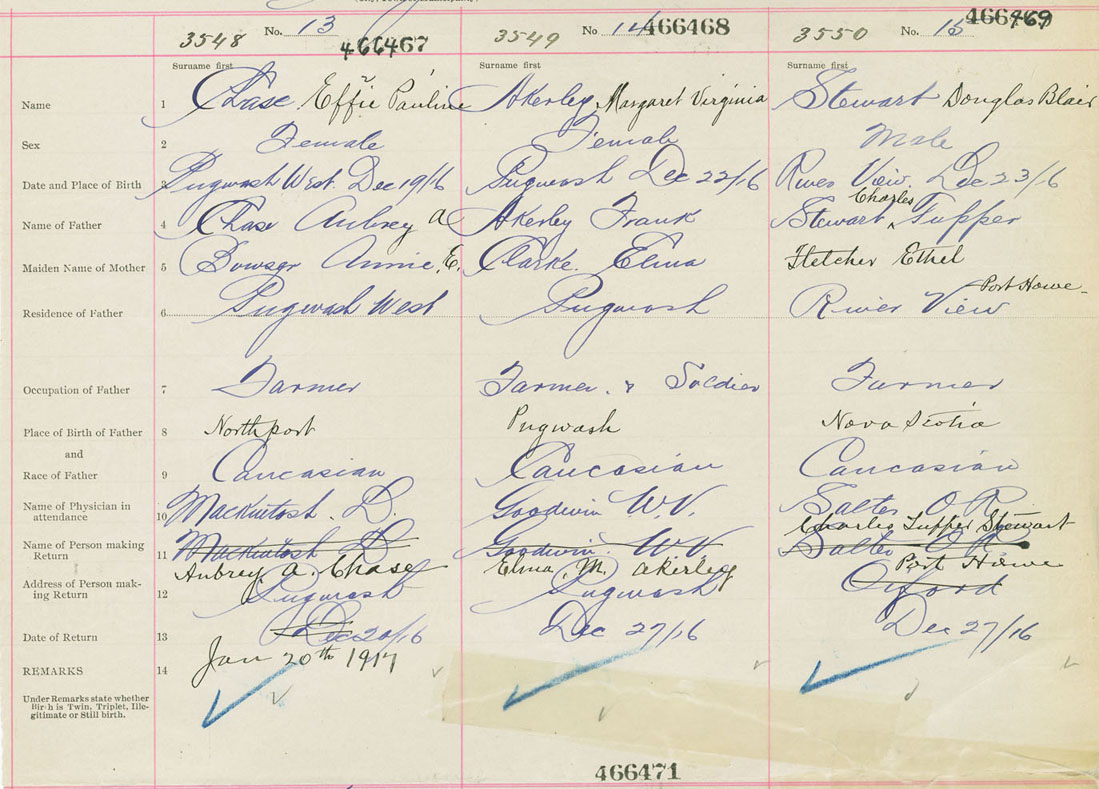 3548 No. 13 466467 3549 No 14 466468 3550 No. 15 466469
Surname first Surname first Surname first
Name 1 Chase Effie Pauline Akerley Margaret Virginia Stewart Douglas Blair
Sex 2 Female Female Male
Date and Place of Birth 3 Pugwash West. Dec 19/16 Pugwash Dec 22/16 River View. Dec 23/16
Charles
Name of Father 4 Chase Aubrey A Akerley Frank Stewart ^ Tupper
Maiden Name of Mother 5 Bowser Annie, E. Clarke. Elma Fletcher Ethel
Port Howe
Residence of Father 6 Pugwash West Pugwash River View
Occupation of Father 7 Farmer Farmer. & Soldier Farmer
Place of Birth of Father 8 Northport Pugwash Nova Scotia
and
Race of Father 9 Caucasian Caucasian Caucasian
Name of Physician in
attendance 10 Mackintosh. D. Goodwin W.V. Salter O R
Charles Tupper Stewart
Name of Person making
Return 11 Mackintosh D Goodwin. W.V Salter O R
Aubrey A. Chase Elma. M. Akerley Port Howe
Address of Person mak-
ing Return 12 Pugwash Pugwash Oxford
Date of Return 13 Dec 20/16 Dec 27/16 Dec 27/16
Jan 20th 1917
REMARKS 14
Under Remarks state whether
Birth is Twin, Triplet, Ille-
gitimate or Still birth.
466471